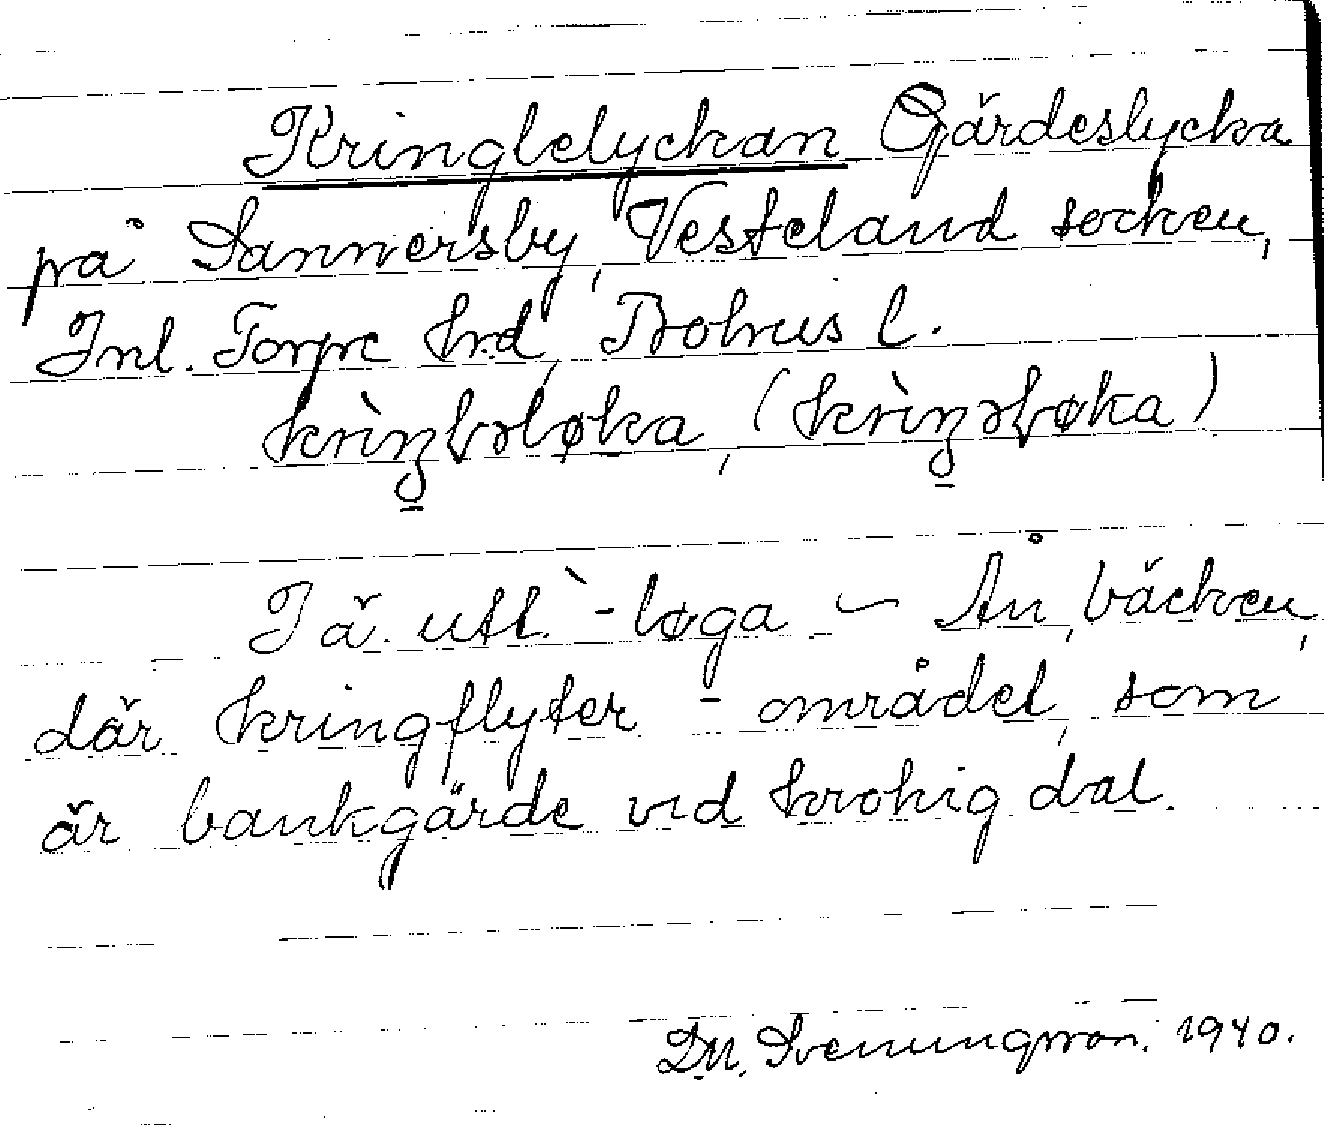 Kringlelyckan Gärdeslycka
på Sannersby, Vesteland socken,
Inl. Torpe hrd, Bohus l.
Iä. utt. -løga – Ån, bäcken,
där kringflyter - området, som
är bankgärde vid krokig dal.
D.N. Sveningsson. 1940.